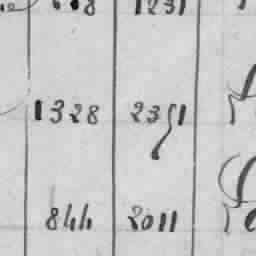 1231
1328 2351
844 2011